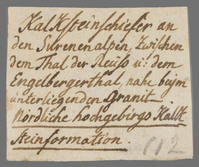 Kalksteinschiefer an
den Surenenalpen, zwischen
dem Thal der Reuss u: dem
Engelbergerthal, nahe beym
unterliegenden Granit.
Nördliche hochgebirgs Kalk
steinformation.
112